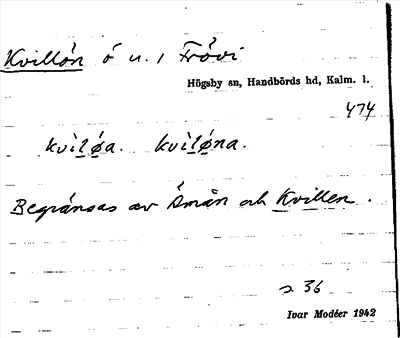 Kvillön ö u. i Frövi
Högsby sn, Handbörds hd, Kalm. l.
474
kvilǿa. kvilǿna.
Begränsas av Åmån och Kvillen.
s. 36
Ivar Modéer 1942